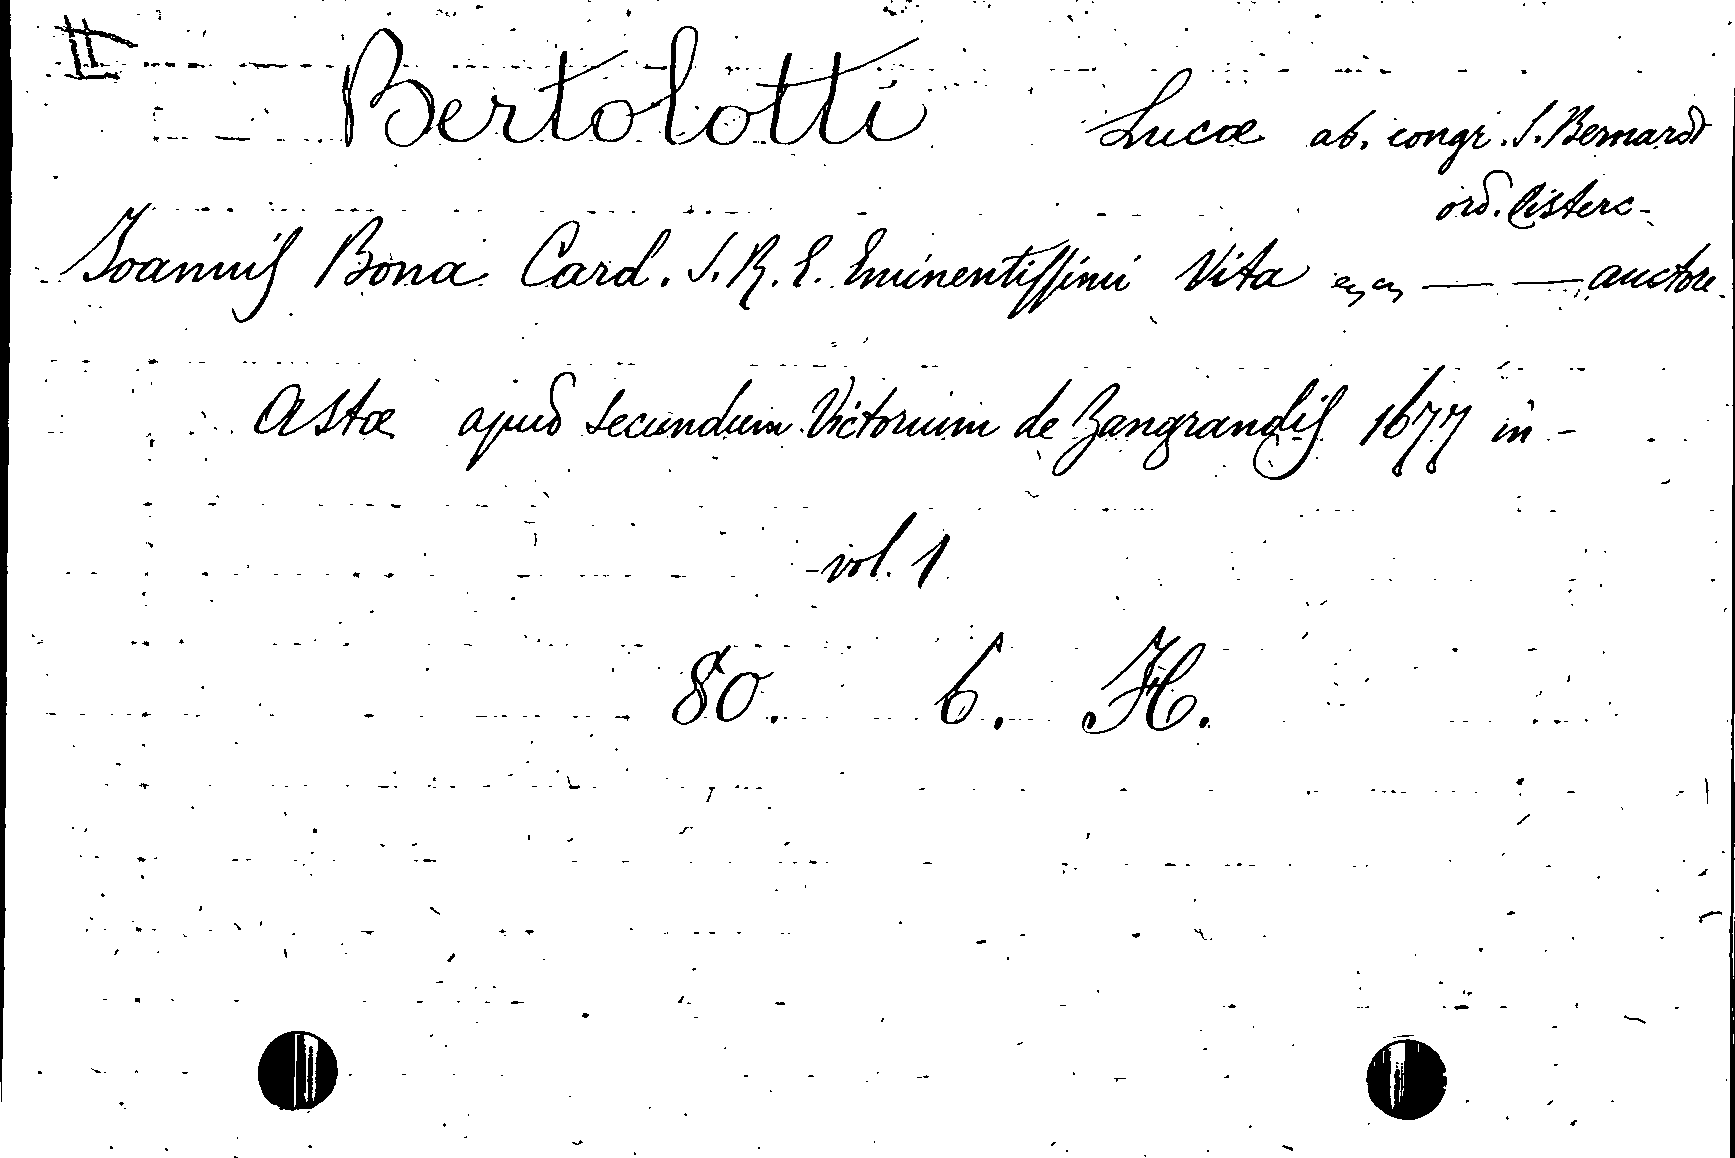 II
Bertolotti Lucæ ab. congr. S. Bernard
ord. Cisterc-
Ioannis Bona Card. S. R. E. Eminentissimi Vita — — auctore
Astæ apud secundum Victorium de Zangrandis 1677 in -
vol. 1
80. 6. H.